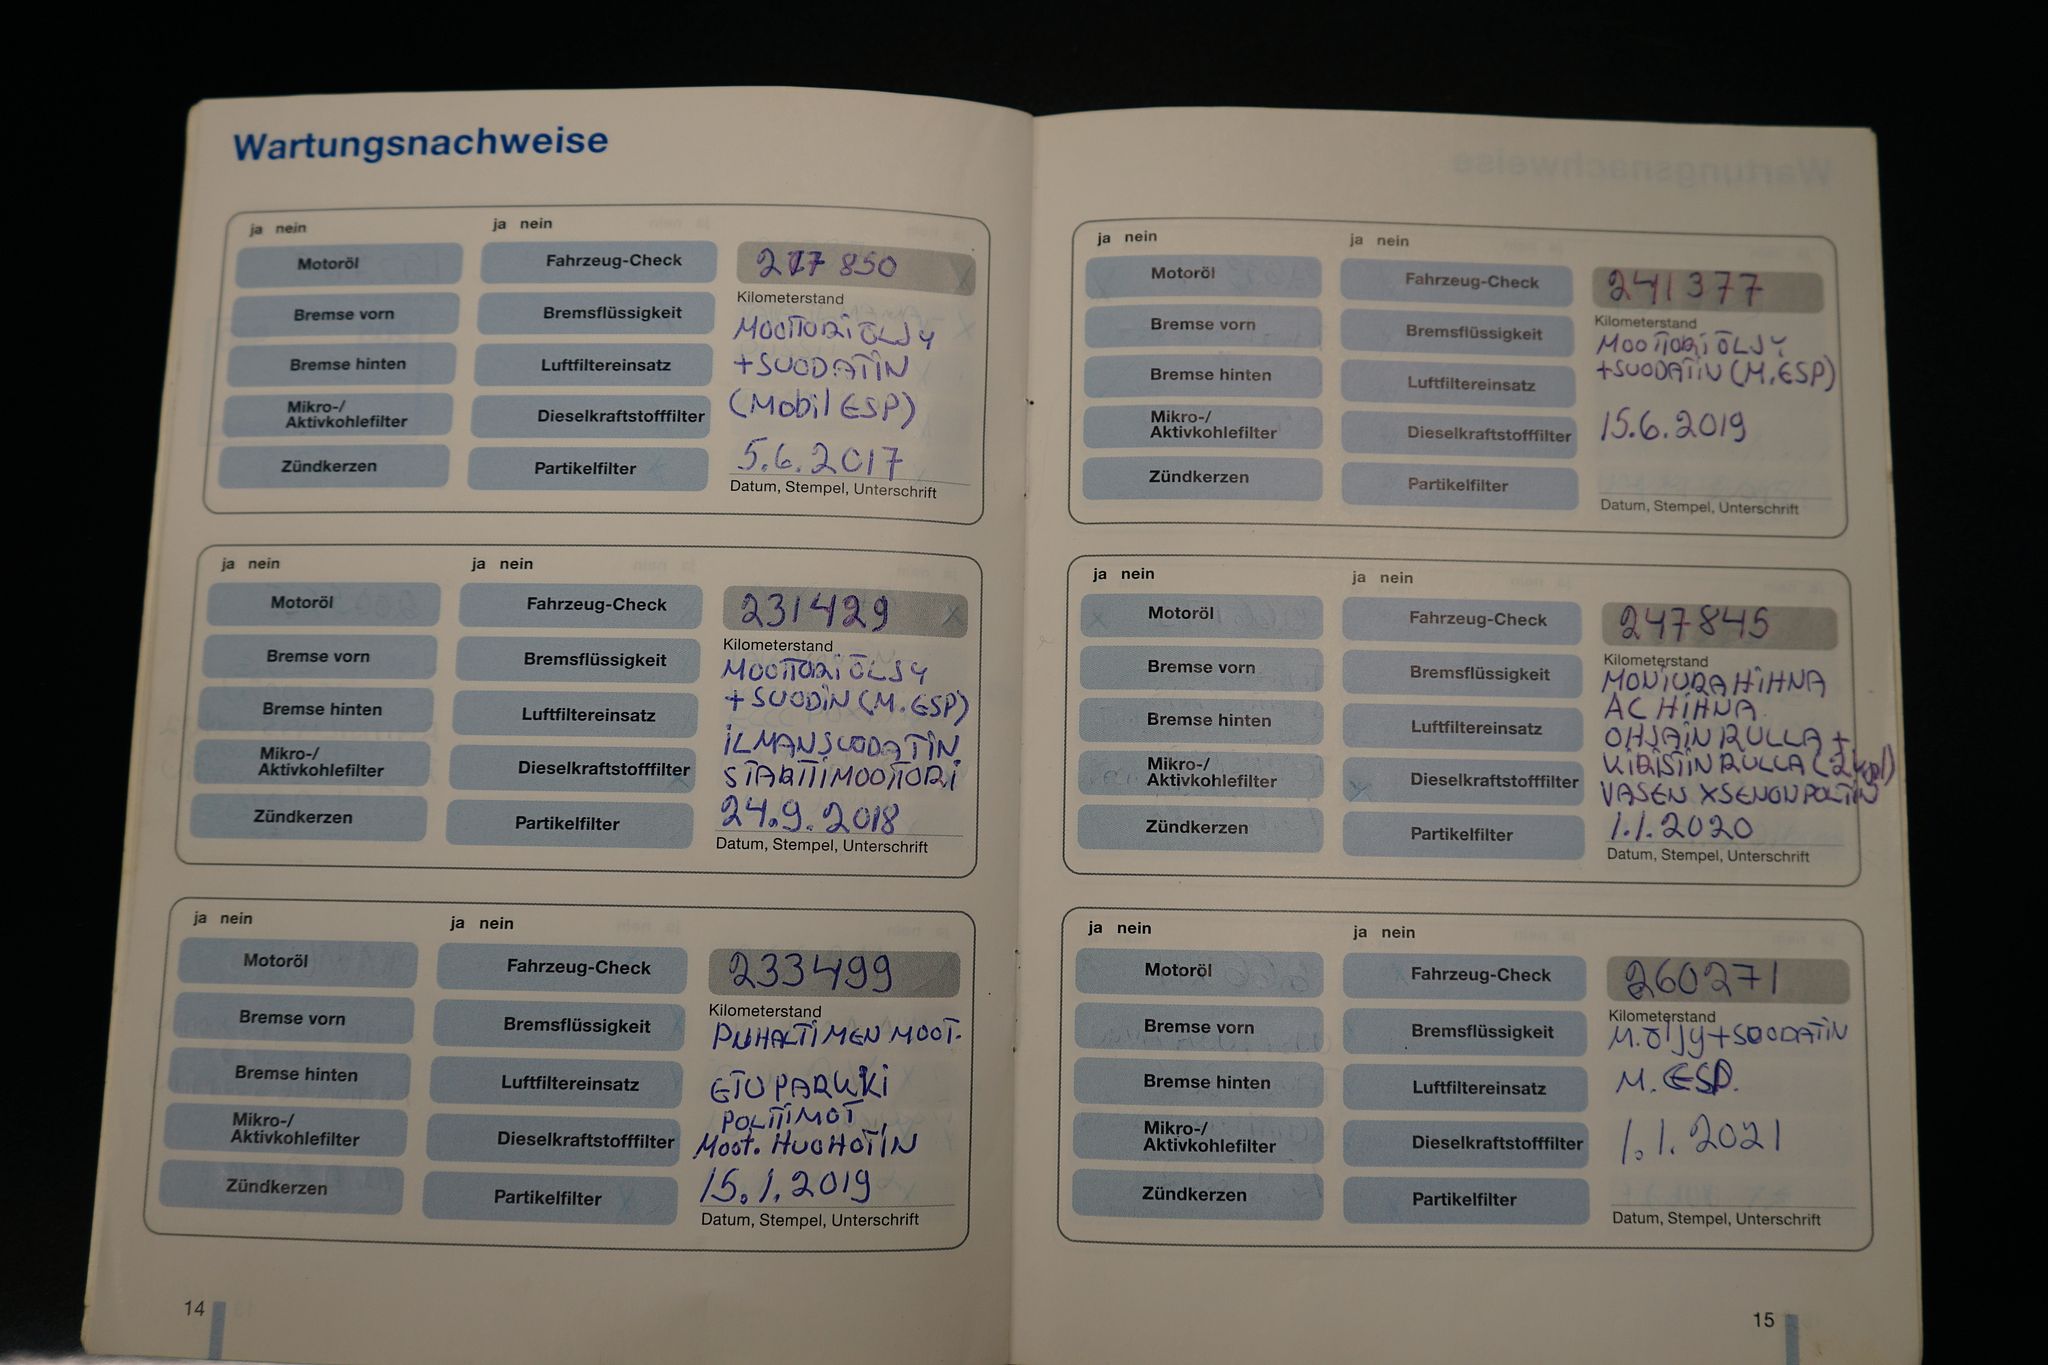 Wartungsnachweise
ja nein
ja nein
Motoröl
Fahrzeug-Check
217 850
Bremse vorn
Bremsflüssigkeit
Kilometerstand
MOOTTORIÖLJY
Bremse hinten
Luftfiltereinsatz
+SUODATIN
Mikro-/
Aktivkohlefilter
Dieselkraftstofffilter
(Mobil ESP)
Zündkerzen
Partikelfilter
5.6.2017
Datum, Stempel, Unterschrift
ja nein
ja nein
Motoröl
Fahrzeug-Check
231429
Bremse vorn
Bremsflüssigkeit
Kilometerstand
MOOTTORIÖLJY
+ SUODIN (M.ESP)
Bremse hinten
Luftfiltereinsatz
ILMANSUODATIN
Mikro-/
Aktivkohlefilter
Dieselkraftstofffilter
STARTTIMOOTTORI
Zündkerzen
Partikelfilter
24.9.2018
Datum, Stempel, Unterschrift
ja nein
ja nein
Motoröl
Fahrzeug-Check
233499
Bremse vorn
Bremsflüssigkeit
Kilometerstand
PUHALTIMEN MOOT.
Bremse hinten
Luftfiltereinsatz
ETUPARUKI
POLTTIMOT,
Mikro-/
Aktivkohlefilter
Dieselkraftstofffilter
Moot. HUOHOTIN
Zündkerzen
Partikelfilter
15.1.2019
Datum, Stempel, Unterschrift
14
ja nein
ja nein
Motoröl
Fahrzeug-Check
241377
Bremse vorn
Bremsflüssigkeit
Kilometerstand
MOOTTORIÖLJY
+SUODATIN (M.ESP)
Bremse hinten
Luftfiltereinsatz
Mikro-/
Aktivkohlefilter
Dieselkraftstofffilter
15.6.2019
Zündkerzen
Partikelfilter
Datum, Stempel, Unterschrift
ja nein
ja nein
Motoröl
Fahrzeug-Check
247845
Bremse vorn
Bremsflüssigkeit
Kilometerstand
MONIURAHIHNA
AC HIHNA
Bremse hinten
Luftfiltereinsatz
OHJAINRULLA +
Mikro-/
Aktivkohlefilter
Dieselkraftstofffilter
KIRISTINRULLA (2kpl)
VASEN XSENONPOLTIN
Zündkerzen
Partikelfilter
1.1.2020
Datum, Stempel, Unterschrift
ja nein
ja nein
Motoröl
Fahrzeug-Check
260271
Bremse vorn
Bremsflüssigkeit
Kilometerstand
M.öljy+SUODATIN
Bremse hinten
Luftfiltereinsatz
M. ESP.
Mikro-/
Aktivkohlefilter
Dieselkraftstofffilter
1.1.2021
Zündkerzen
Partikelfilter
Datum, Stempel, Unterschrift
15